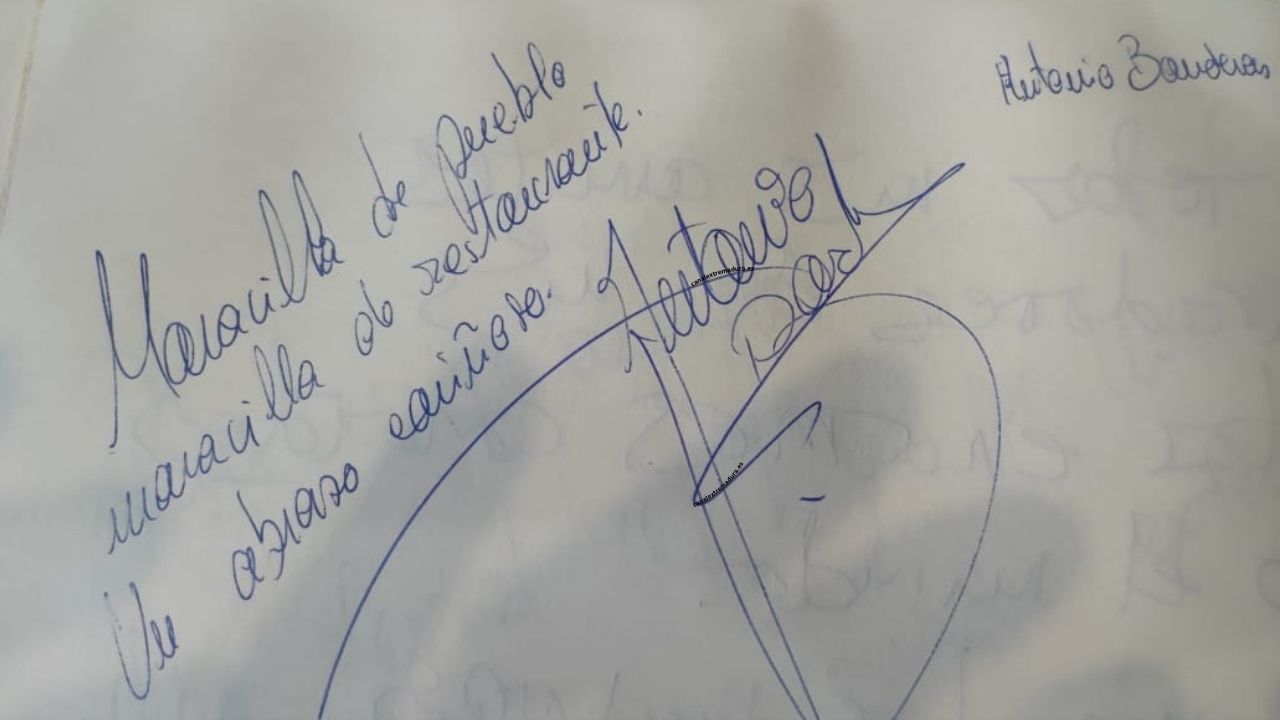 Antonio Banderas
Maravilla de pueblo
maravilla de restaurante.
Un abrazo cariñoso.
Antonio
canalextremadura.es
canalextremadura.es